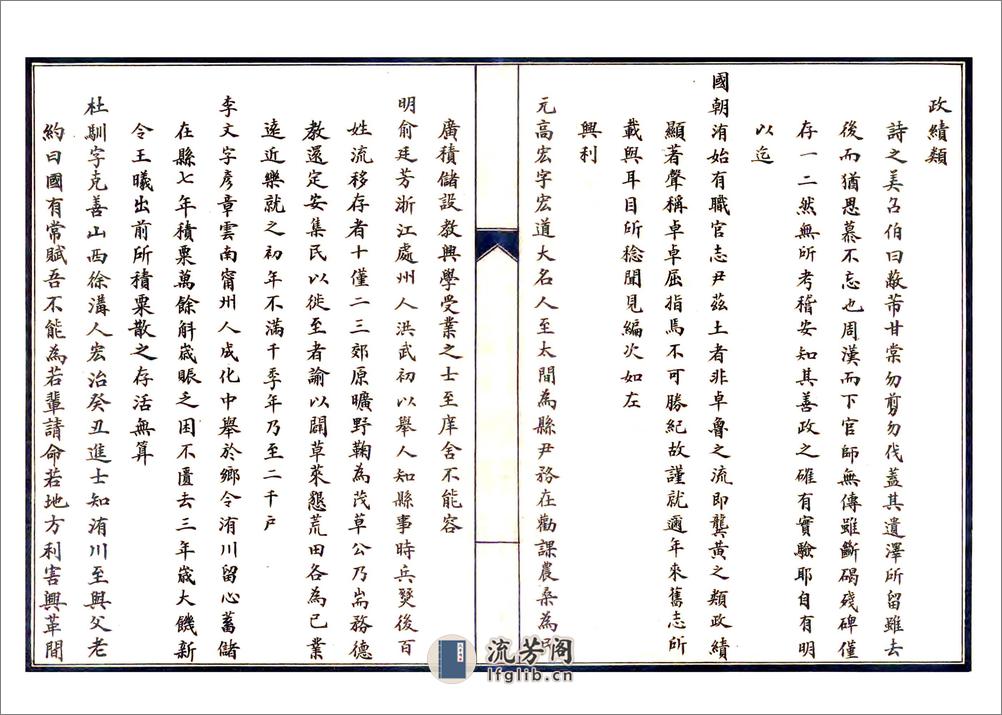 政績類
詩之美召伯曰蔽芾甘棠勿剪勿伐蓋其遺澤所留雖去
後而猶思慕不忘也周漢而下官師無傳雖斷碣殘碑僅
存一二然無所考稽安知其善政之確有實驗耶自有明
以迄
國朝洧始有職官志尹茲土者非卓魯之流即龔黃之類政績
顯著聲稱卓卓屈指焉不可勝紀故謹就邇年來舊志所
載與耳目所稔聞見編次如左
興利
元高宏字宏道大名人至太間為縣尹務在勸課農桑為
廣積儲設教興學受業之士至庠舍不能容
明俞廷芳浙江處州人洪武初以舉人知縣事時兵燹後百
姓流移存者十僅二三郊原曠野鞠為茂草公乃耑務德
教還定安集民以徙至者諭以闢草萊懇荒田各為己業
遠近樂就之初年不滿千季年乃至二千戶
李文字彥章雲南甯州人成化中舉於鄉令洧川留心蓄儲
在縣七年積粟萬餘斛歲賑之困不匱去三年歲大饑新
令王曦出前所積粟散之存活無算
杜馴字克善山西徐溝人宏治癸丑進士知洧川至與父老
約曰國有常賦吾不能為若輩請命若地方利害興革間
流芳阁
lfglib.cn